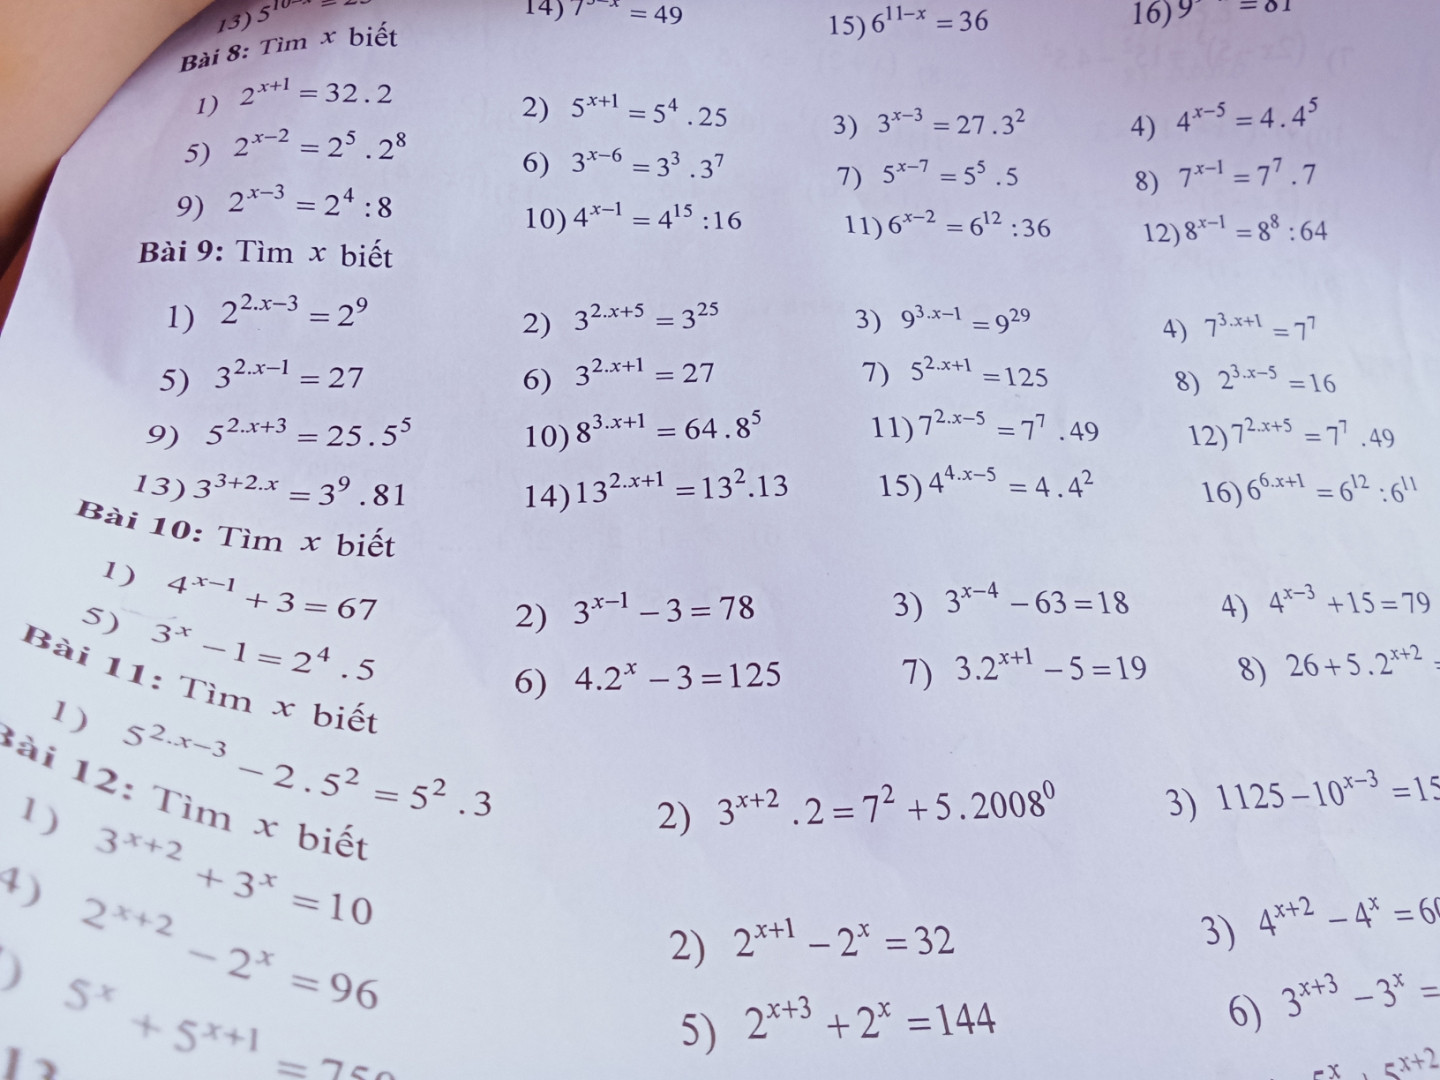 13) 5^{10-x}
14) 7 = 49
15) 6^{11-x} = 36
16) 9 = 81
Bài 8: Tìm x biết
1) 2^{x+1} = 32 . 2
2) 5^{x+1} = 5^4 . 25
3) 3^{x-3} = 27 . 3^2
4) 4^{x-5} = 4 . 4^5
5) 2^{x-2} = 2^5 . 2^8
6) 3^{x-6} = 3^3 . 3^7
7) 5^{x-7} = 5^5 . 5
8) 7^{x-1} = 7^7 . 7
9) 2^{x-3} = 2^4 : 8
10) 4^{x-1} = 4^{15} : 16
11) 6^{x-2} = 6^{12} : 36
12) 8^{x-1} = 8^8 : 64
Bài 9: Tìm x biết
1) 2^{2.x-3} = 2^9
2) 3^{2.x+5} = 3^{25}
3) 9^{3.x-1} = 9^{29}
4) 7^{3.x+1} = 7^7
5) 3^{2.x-1} = 27
6) 3^{2.x+1} = 27
7) 5^{2.x+1} = 125
8) 2^{3.x-5} = 16
9) 5^{2.x+3} = 25 . 5^5
10) 8^{3.x+1} = 64 . 8^5
11) 7^{2.x-5} = 7^7 . 49
12) 7^{2.x+5} = 7^7 . 49
13) 3^{3+2.x} = 3^9 . 81
14) 13^{2.x+1} = 13^2.13
15) 4^{4.x-5} = 4 . 4^2
16) 6^{6.x+1} = 6^{12} : 6^{11}
Bài 10: Tìm x biết
1) 4^{x-1} + 3 = 67
2) 3^{x-1} - 3 = 78
3) 3^{x-4} - 63 = 18
4) 4^{x-3} + 15 = 79
5) 3^x - 1 = 2^4 . 5
6) 4.2^x - 3 = 125
7) 3.2^{x+1} - 5 = 19
8) 26 + 5 . 2^{x+2}
Bài 11: Tìm x biết
1) 5^{2.x-3} - 2 . 5^2 = 5^2 . 3
2) 3^{x+2} . 2 = 7^2 + 5 . 2008^0
3) 1125 - 10^{x-3} = 
Bài 12: Tìm x biết
1) 3^{x+2} + 3^x = 10
2) 2^{x+1} - 2^x = 32
3) 4^{x+2} - 4^x = 
4) 2^{x+2} - 2^x = 96
5) 2^{x+3} + 2^x = 144
6) 3^{x+3} - 3^x =
5^x + 5^{x+1} =
5^{x+2}